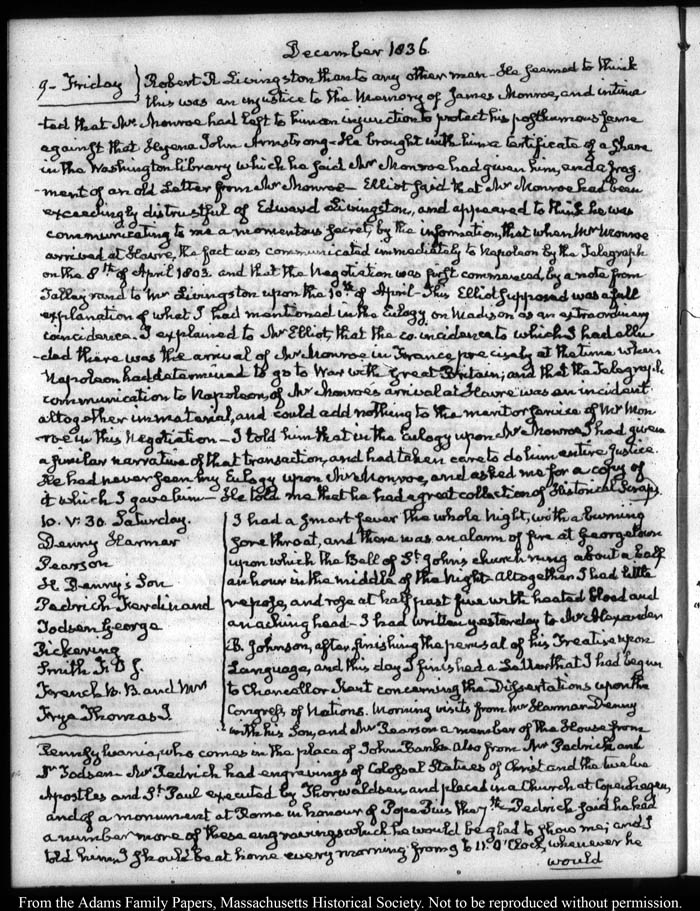 December 1836.
9 - Friday } Robert R. Livingston than to any other man - He seemed to think
this was an injustice to the Memory of James Monroe, and intima
-ted that Mr. Monroe had left to him an injunction to protect his posthumous fame
against that Hyena John Armstrong - He brought with him a Certificate of a Share
in the Washington library which he said Mr Monroe had given him, and a frag-
-ment of an old Letter from Mr Monroe - Elliot said that Mr Monroe had been
exceedingly distrustful of Edward Livingston, and appeared to think he was
communicating to me a momentous secret, by the information, that when Mr Monroe
arrived at Havre, the fact was communicated immediately to Napoleon by the Telegraph
on the 8th of April 1803 and that the Negotiation was first commenced, by a note from
Talleyrand to Mr Livingston upon the 10th of April - This Elliot supposed was a full
explanation of what I had mentioned in the Eulogy on Madison as an extraordinary
coincidence. I explained to Mr Elliot, that the co-incidence to which I had allu
-ded there was the arrival of Mr Monroe in France, precisely at the time when
Napoleon had determined to go to War with Great Britain; and that the Telegraphic
communication to Napoleon, of Mr Monroe's arrival at Havre was an incident
altogether immaterial, and could add nothing to the merit or service of Mr Mon-
-roe in this Negotiation - I told him that in the Eulogy upon Mr Monroe I had given
a similar narrative of that transaction, and had taken care to do him entire Justice.
He had never seen my Eulogy upon Mr Monroe, and asked me for a copy of
it which I gave him - He told me that he had a great collection of Historical Scraps
10. V: 30. Saturday.
Denny Harmar
Pearson
H Denny's Son
Pedrich Ferdinand
Todsen George
Pickering
Smith F. O. J.
French B. B. and Mrs
Frye Thomas I.
I had a smart fever the whole Night, with a burning
sore throat, and there was an alarm of fire at Georgetown
upon which the Bell of St John's church rung about a half
an hour in the middle of the Night. Altogether I had little
repose, and rose at half past five with heated blood and
an aching head - I had written yesterday to Mr Alexander
B. Johnson, after finishing the perusal of his Treatise upon
Language, and this day I finished a Letter that I had begun
to Chancellor Kent concerning the Dissertations upon the
Congress of Nations. Morning visits from Mr Harmar Denny
with his Son, and Mr Pearson a member of the House from
Pennsylvania, who comes in the place of John Banks. Also from Mr Pedrick and
Dr Todsen - Mr Pedrick had engravings of Colossal Statues of Christ and the twelve
Apostles and St Paul executed by Thorwaldsen and placed in a Church at Copenhagen,
and of a monument at Rome in honour of Pope Pius the 7th - Pedrich said he had
a number more of these engravings which he would be glad to show me; and I
told him, I should be at home every morning from 9 to 11. O'Clock, whenever he
would
From the Adams Family Papers, Massachusetts Historical Society. Not to be reproduced without permission.